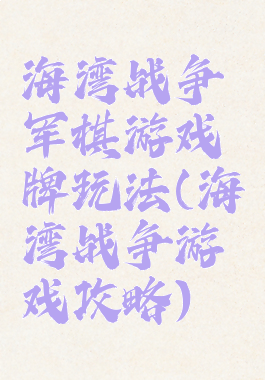 海湾战争
军棋游戏
牌玩法(海
湾战争游
戏攻略)